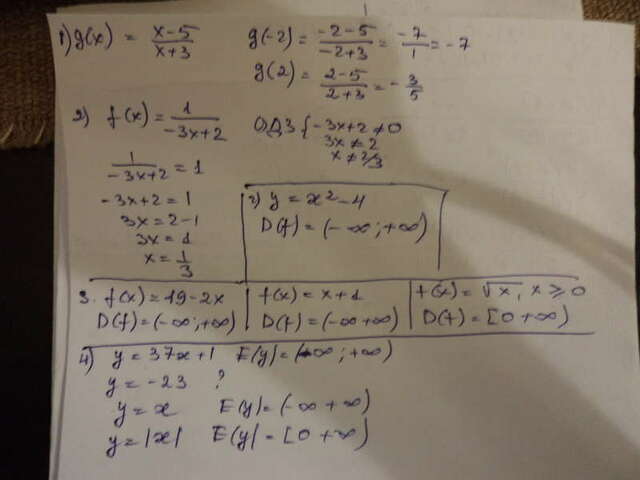 1) g(x) = x-5/x+3 g(-2) = -2-5/-2+3 = -7/1 = -7
g(2) = 2-5/2+3 = -3/5
2) f(x) = 1/-3x+2 ОДЗ { -3x+2 ≠ 0
3x ≠ 2
x ≠ 2/3
1/-3x+2 = 1
-3x+2 = 1
3x = 2-1
3x = 1
x = 1/3
2) y = x²-4
D(f) = (-∞; +∞)
3. f(x) = 19-2x f(x) = x+1 f(x) = √x, x ≥ 0
D(f) = (-∞; +∞) D(f) = (-∞ +∞) D(f) = [0 +∞)
4) y = 37x+1 E(y) = (-∞; +∞)
y = -23 ?
y = x E(y) = (-∞ +∞)
y = |x| E(y) = [0 +∞)